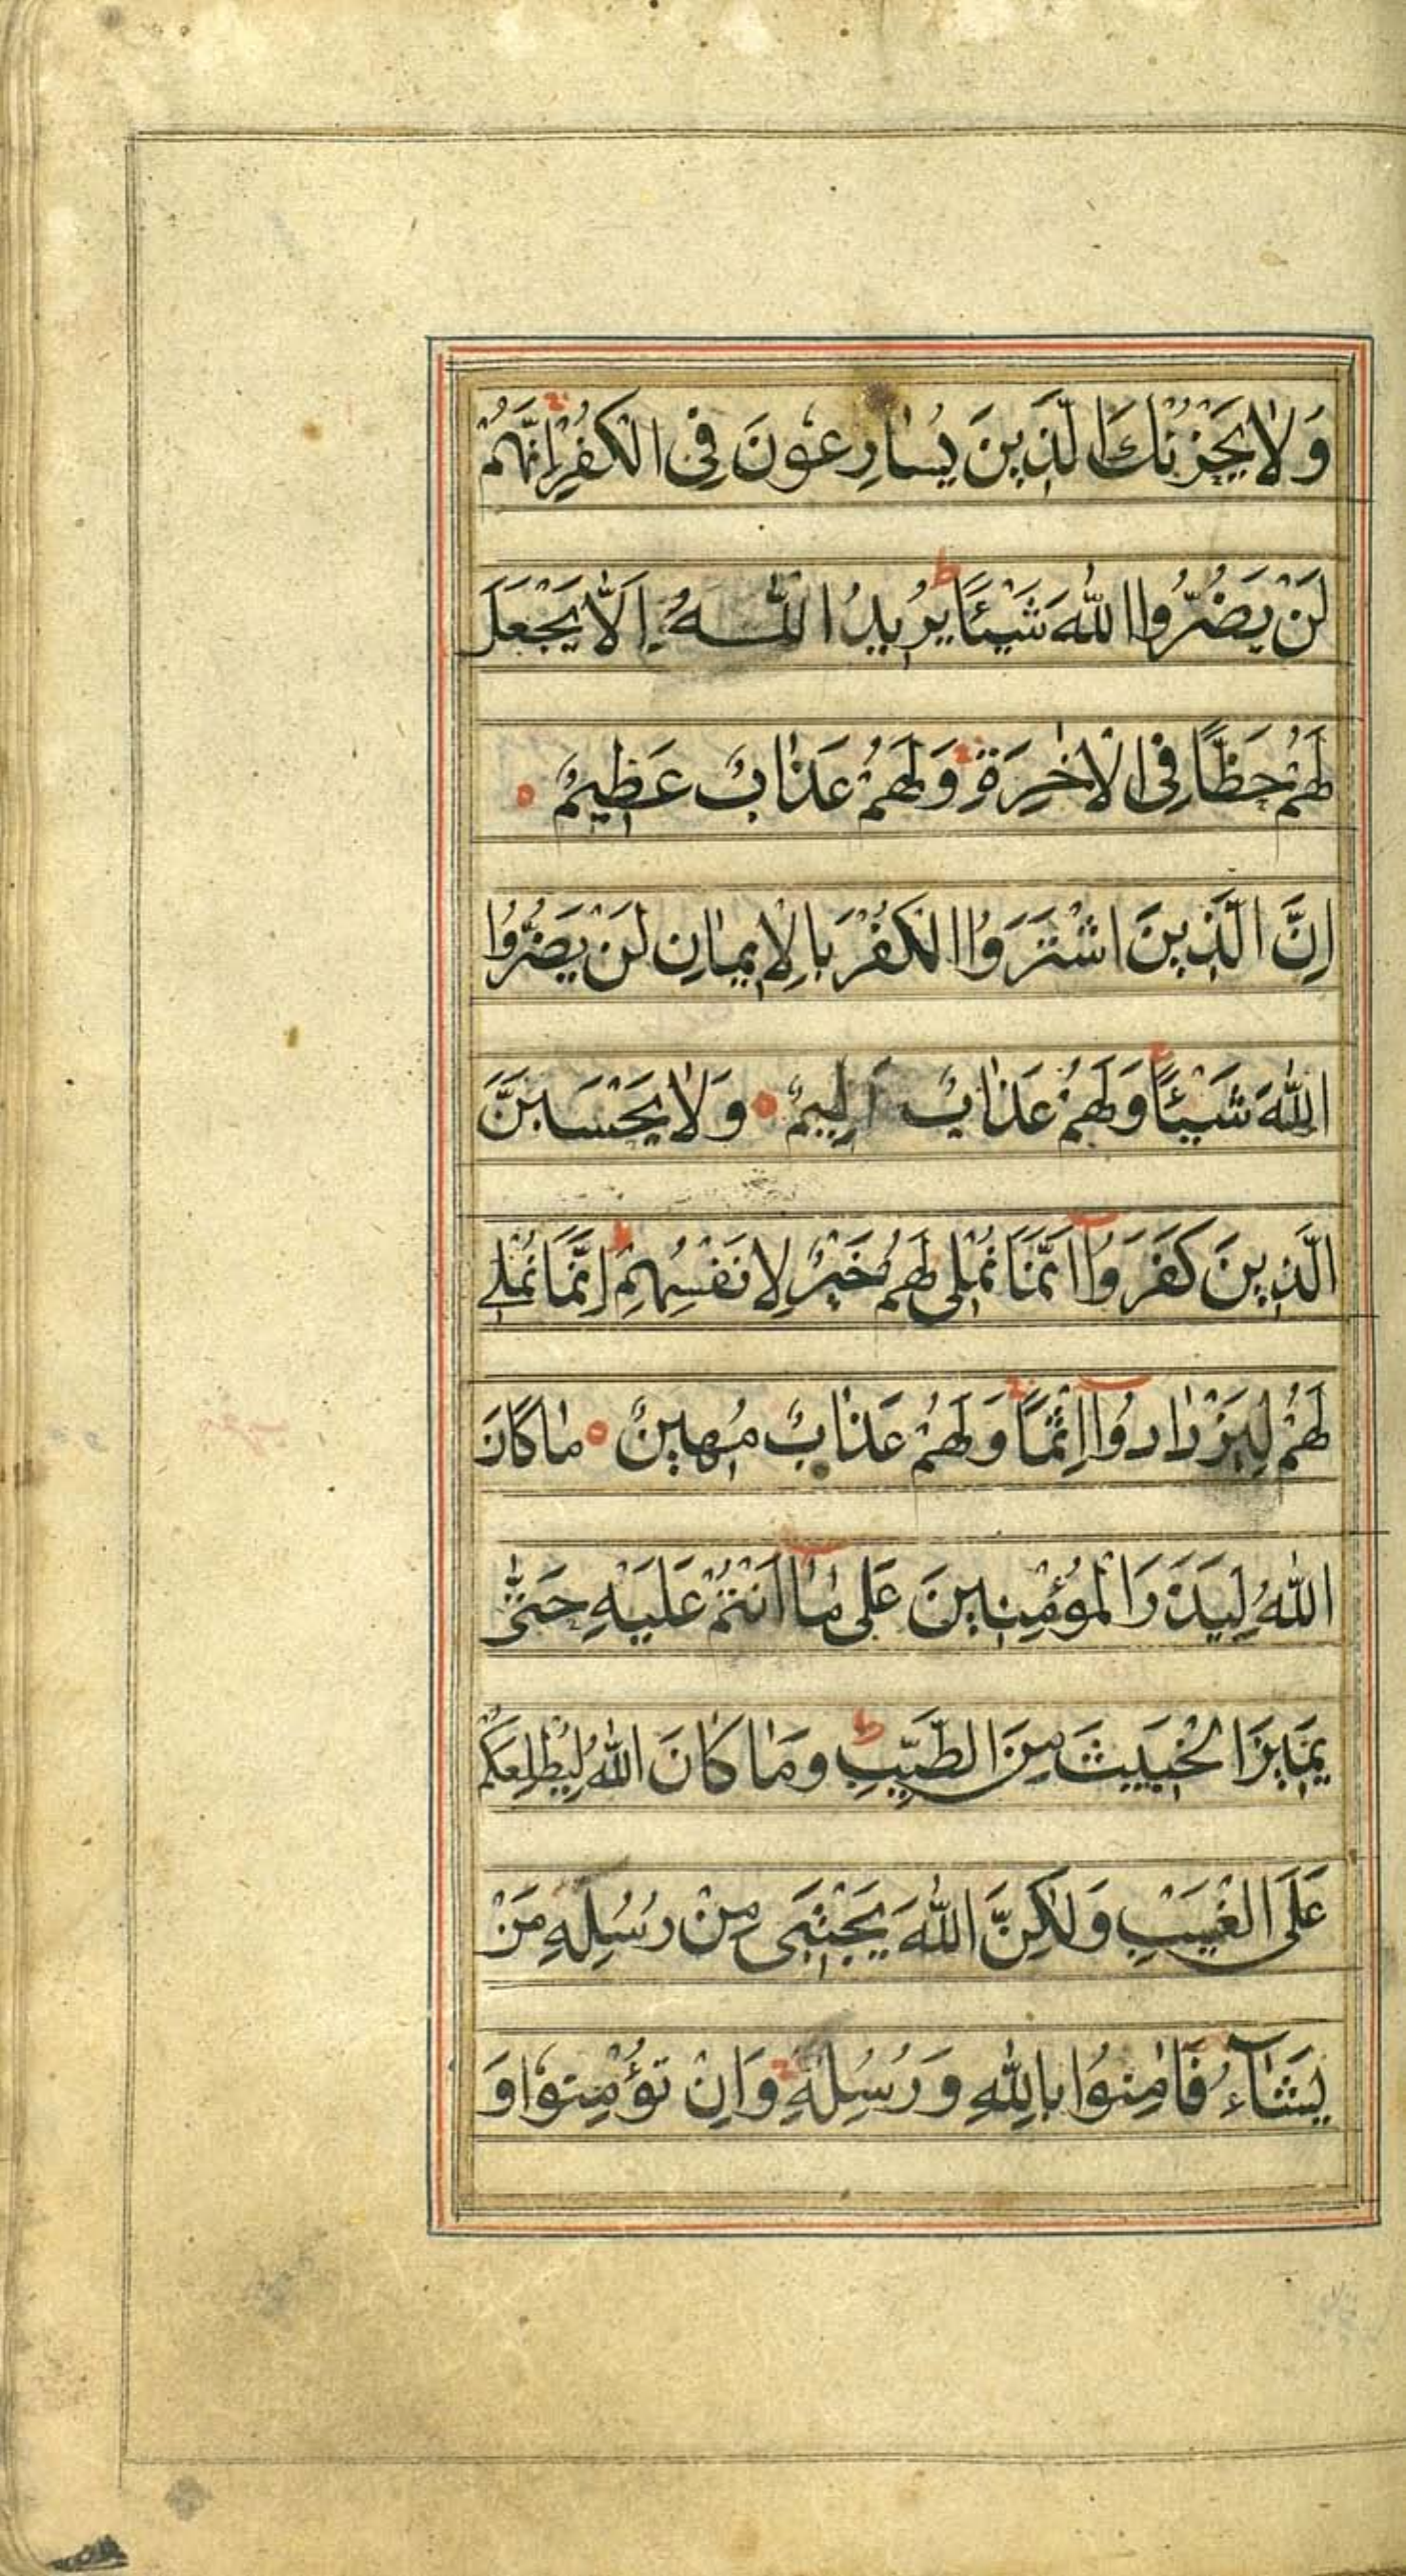 وَلَا يَحْزُنْكَ الَّذِينَ يُسَارِعُونَ فِي الْكُفْرِ اِنَّهُمْ
لَنْ يَضُرُّوا اللّٰهَ شَيْئًا ط يُرِيدُ اللّٰهُ اَلَّا يَجْعَلَ
لَهُمْ حَظًّا فِي الْاٰخِرَةِ وَلَهُمْ عَذَابٌ عَظِيمٌ ه
اِنَّ الَّذِينَ اشْتَرَوُا الْكُفْرَ بِالْاِيمَانِ لَنْ يَضُرُّوا
اللّٰهَ شَيْئًا وَلَهُمْ عَذَابٌ اَلِيمٌ ه وَلَا يَحْسَبَنَّ
الَّذِينَ كَفَرُوا اَنَّمَا نُمْلِي لَهُمْ خَيْرٌ لِاَنْفُسِهِمْ ط اِنَّمَا نُمْلِي
لَهُمْ لِيَزْدَادُوا اِثْمًا وَلَهُمْ عَذَابٌ مُهِينٌ ه مَا كَانَ
اللّٰهُ لِيَذَرَ الْمُؤْمِنِينَ عَلٰى مَا اَنْتُمْ عَلَيْهِ حَتّٰى
يَمِيزَ الْخَبِيثَ مِنَ الطَّيِّبِ ط وَمَا كَانَ اللّٰهُ لِيُطْلِعَكُمْ
عَلَى الْغَيْبِ وَلٰكِنَّ اللّٰهَ يَجْتَبِي مِنْ رُسُلِهِ مَنْ
يَشَآءُ فَاٰمِنُوا بِاللّٰهِ وَرُسُلِهِ وَاِنْ تُؤْمِنُوا وَ